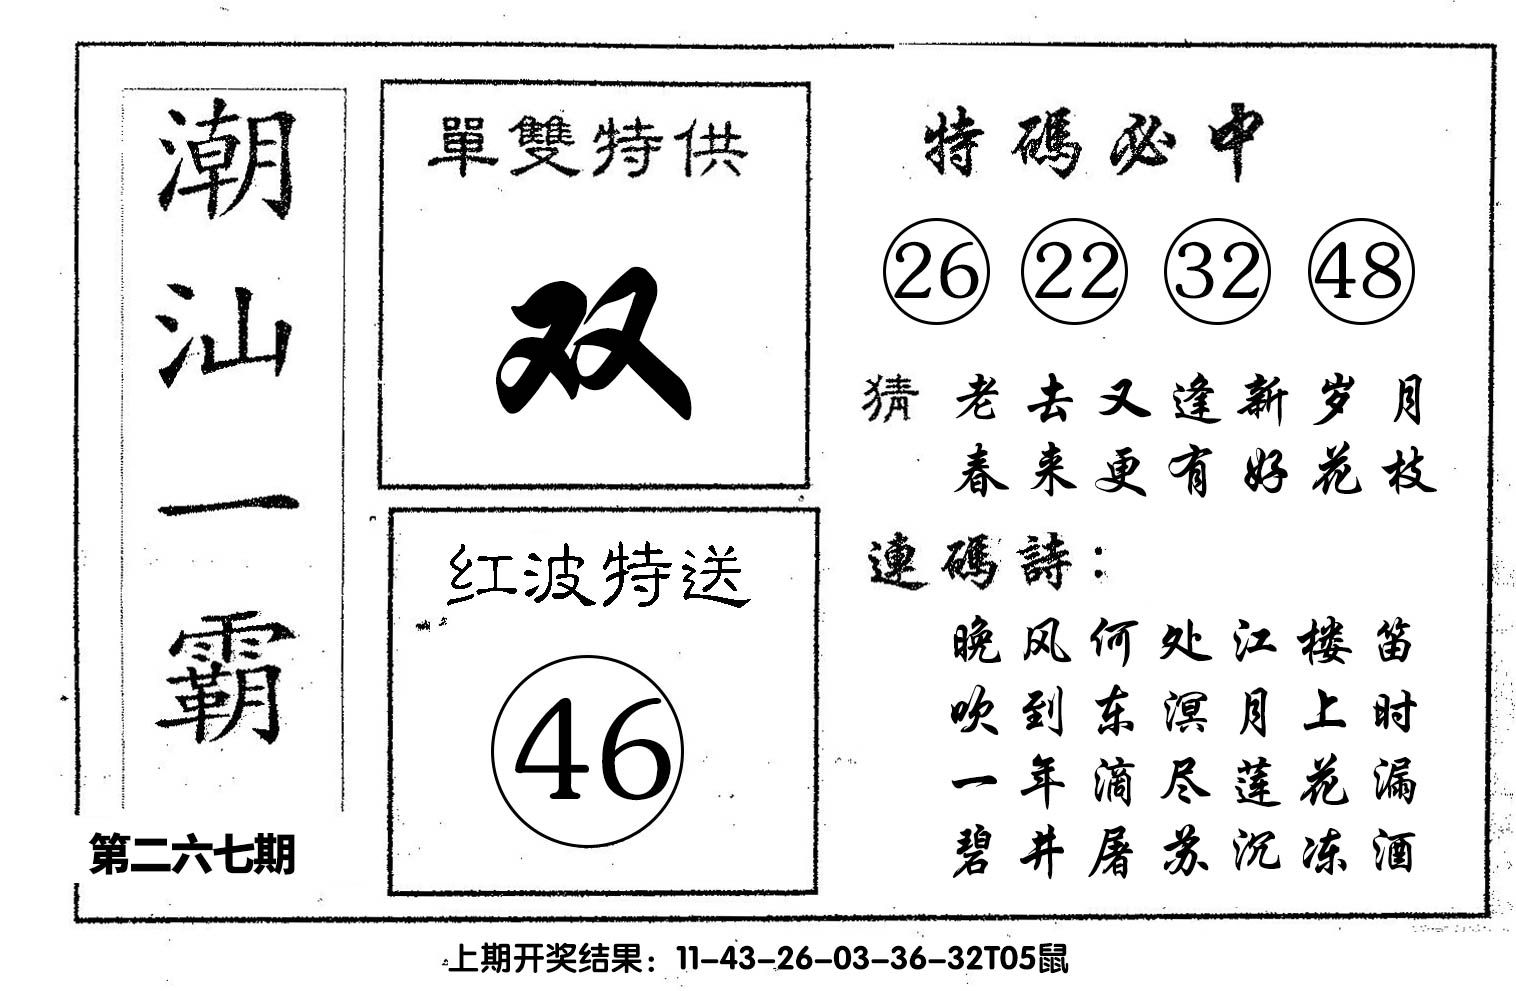 潮汕一霸
第二六七期
單雙特供
双
红波特送
46
特碼必中
26 22 32 48
猜 老去又逢新岁月
春来更有好花枝
連碼詩：
晚风何处江楼笛
吹到东溟月上时
一年滴尽莲花漏
碧井屠苏沉冻酒
上期开奖结果：11-43-26-03-36-32T05鼠